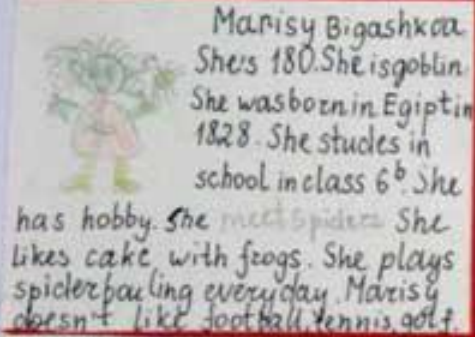 Marisy Bigashkoa
She's 180. She is goblin
She was born in Egipt in
1828. She studes in
school in class 6b. She
has hobby. She meet spiders She
likes cake with frogs. She plays
spiderbouling everyday. Marisy
doesn't like football, tennis, golf.